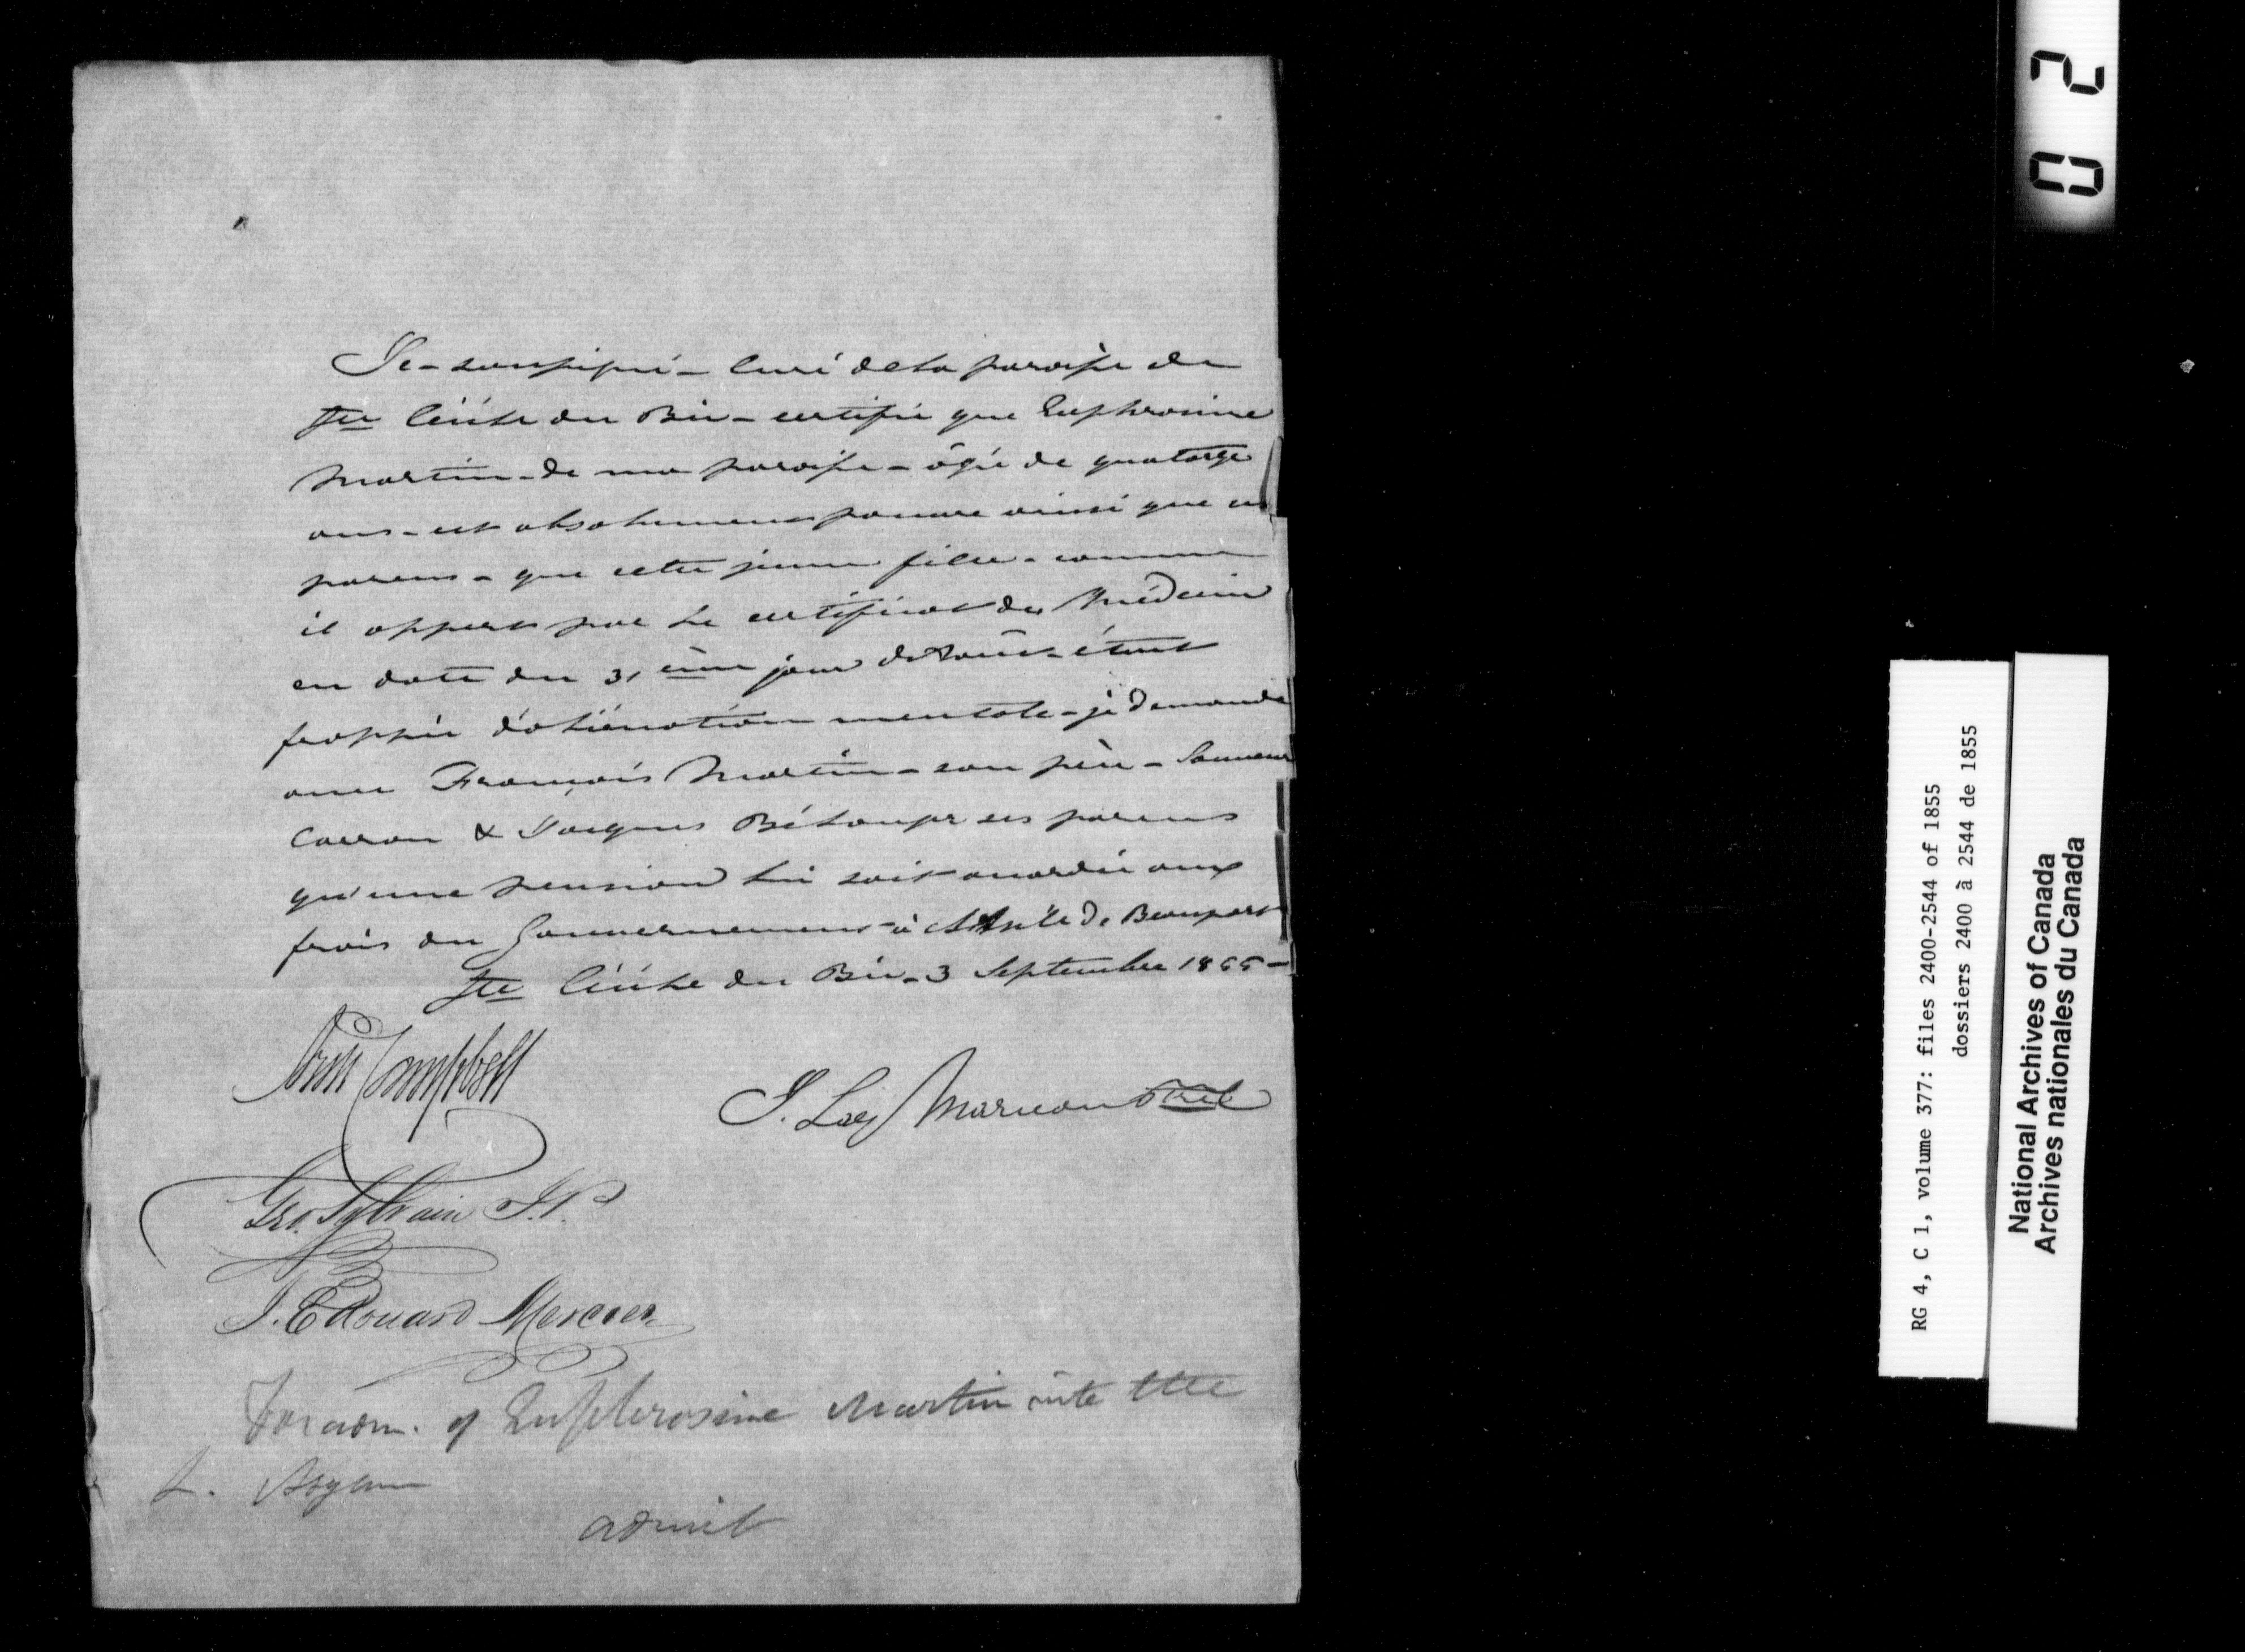 Je - soussigné - Curé de la paroisse de
Ste Cécile du Bic - certifie que Euphrosine
Martin - de ma paroisse - âgée de quatorze
ans - est absolument pauvre ainsi que ses
parens - que cette jeune fille - comme
il appert par le certificat du Médecin
en date du 31 ème jour d'Août - étant
frappée d'aliénation mentale - je demande
avec François Martin - son père - Sauveur
Caron & Jacques Bélanger ses parens
qu'une pension lui soit accordée aux
frais du Gouvernement - à l'Asile de Beauport
Ste Cécile du Bic - 3 Septembre 1855 -
Campbell
J. Marceau Ptre
Geo. Sylvain J.P.
J. Edouard Mercier
For adm. of Euphrosine Martin into the
L. Asylum
admit
02
RG 4, C 1, volume 377: files 2400-2544 of 1855
dossiers 2400 à 2544 de 1855
National Archives of Canada
Archives nationales du Canada